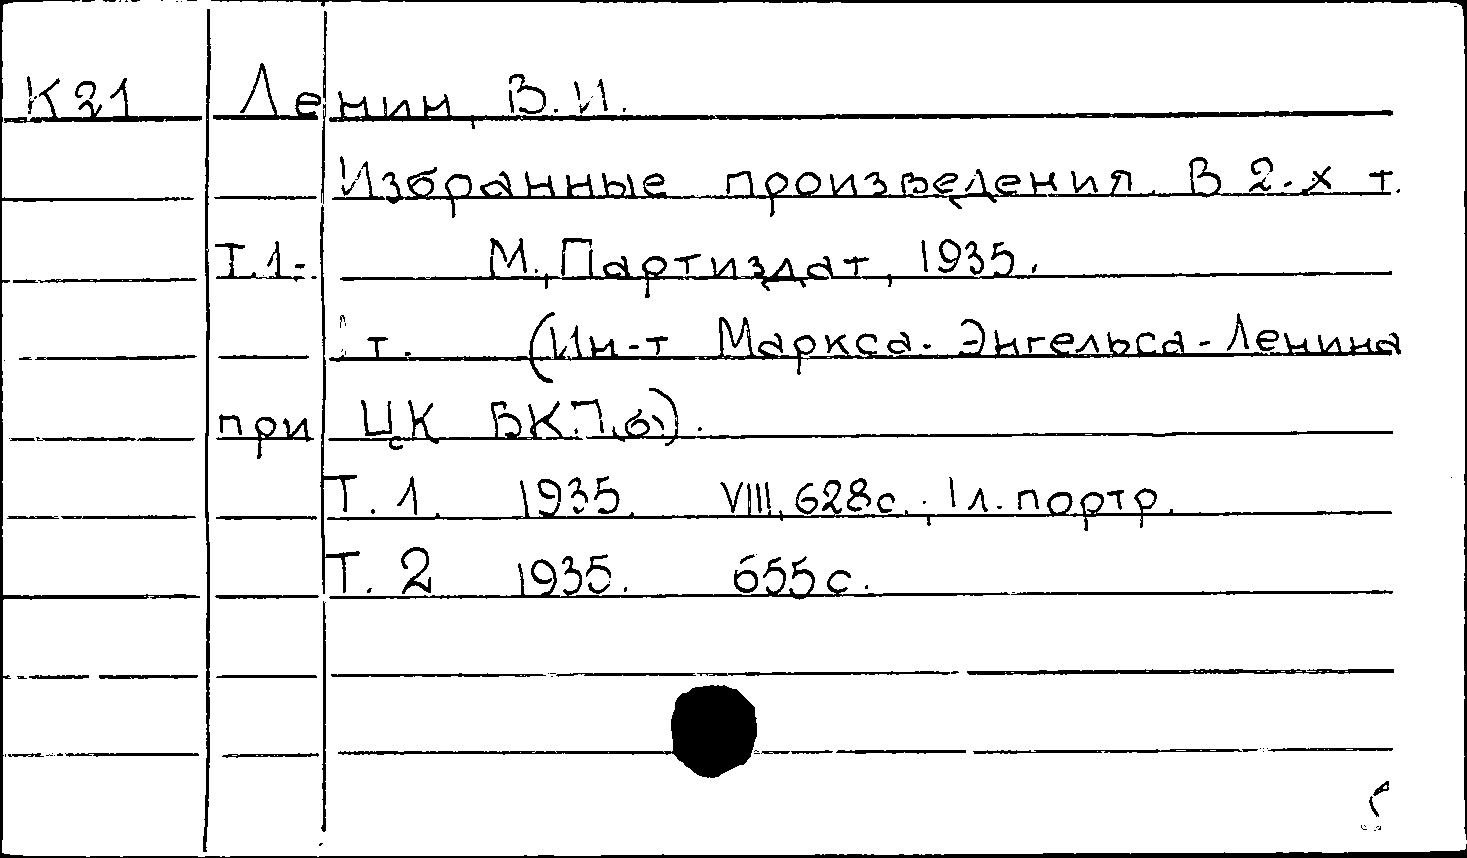 К21 Ленин, В.И.
Избранные произведения. В 2-х т.
Т.1-. М., Партиздат, 1935.
т. (Ин-т Маркса-Энгельса-Ленина
при ЦК ВКП(б)).
Т. 1. 1935. VIII, 628с.; 1 л. портр.
Т. 2 1935. 655с.